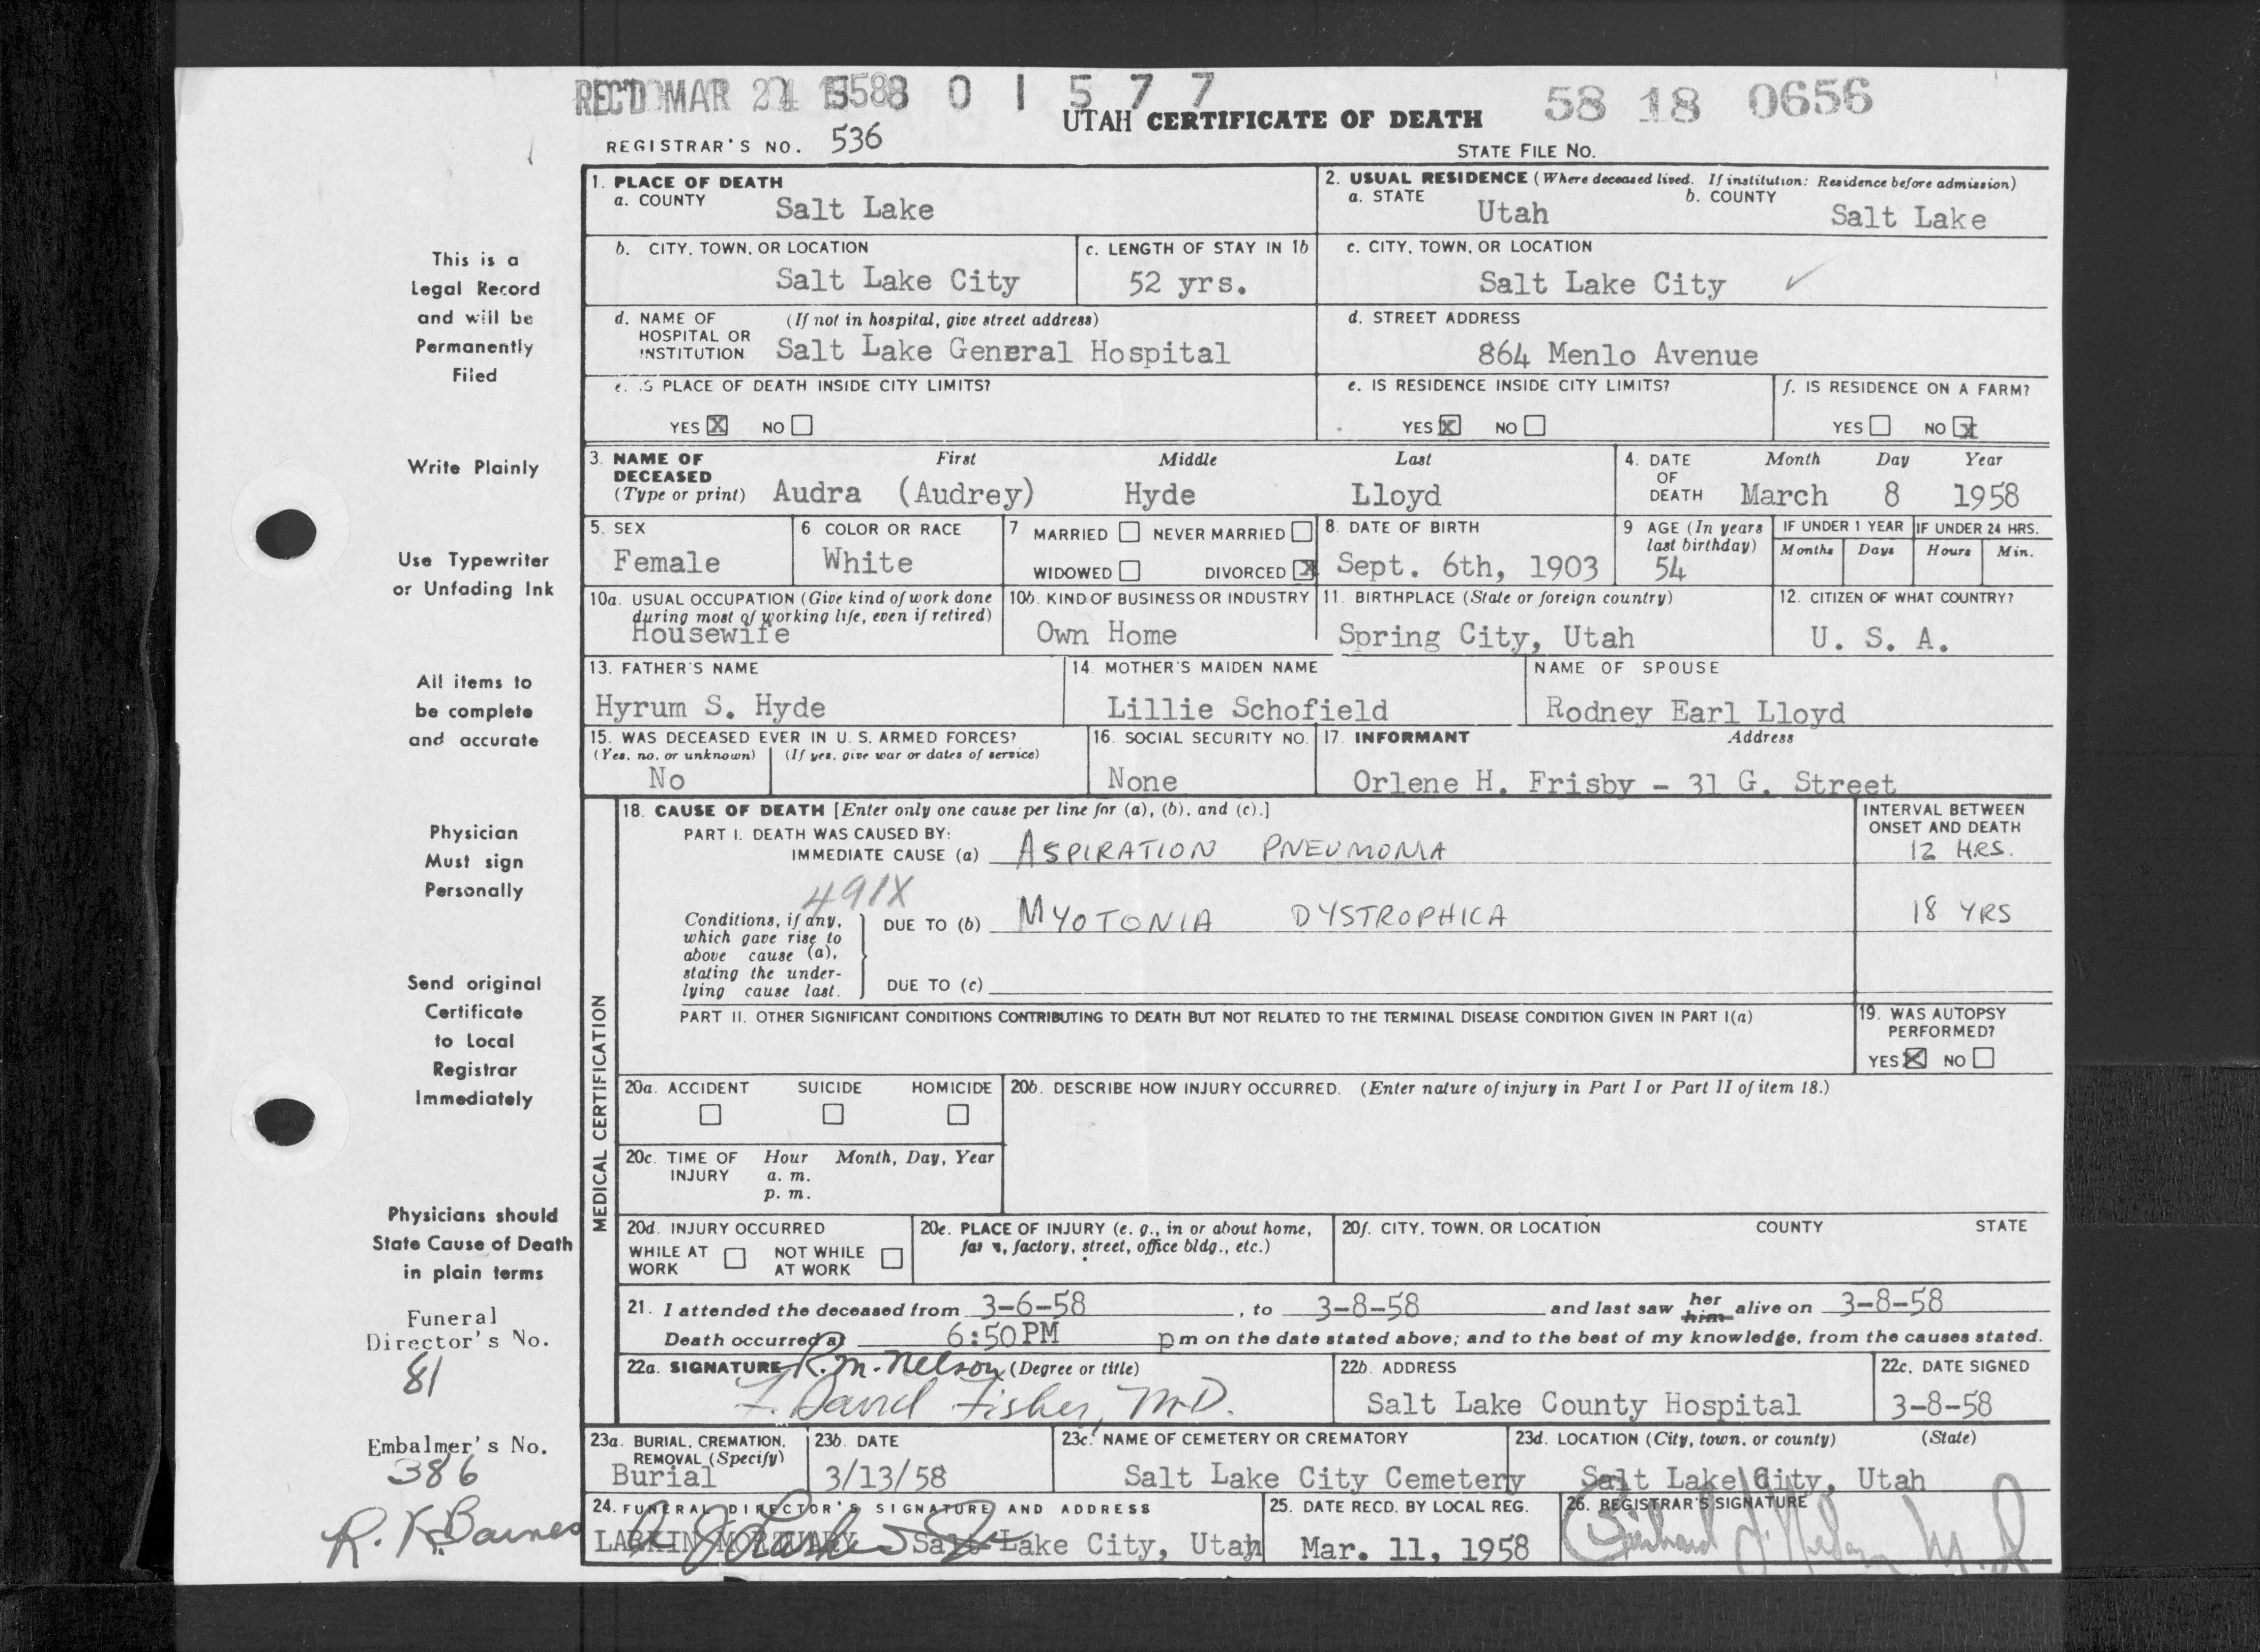 REC'D MAR 24 1958 0 1 5 7 7
58 18 0656
UTAH CERTIFICATE OF DEATH
REGISTRAR'S NO. 536
STATE FILE No.
1. PLACE OF DEATH
a. COUNTY Salt Lake
2. USUAL RESIDENCE (Where deceased lived. If institution: Residence before admission)
a. STATE Utah b. COUNTY Salt Lake
b. CITY, TOWN, OR LOCATION Salt Lake City
c. LENGTH OF STAY IN 1b 52 yrs.
c. CITY, TOWN, OR LOCATION Salt Lake City
d. NAME OF HOSPITAL OR INSTITUTION (If not in hospital, give street address) Salt Lake General Hospital
d. STREET ADDRESS 864 Menlo Avenue
e. IS PLACE OF DEATH INSIDE CITY LIMITS?
YES X NO
e. IS RESIDENCE INSIDE CITY LIMITS?
YES X NO
f. IS RESIDENCE ON A FARM?
YES NO X
3. NAME OF DECEASED (Type or print) First Middle Last
Audra (Audrey) Hyde Lloyd
4. DATE OF DEATH Month Day Year
March 8 1958
5. SEX Female
6. COLOR OR RACE White
7 MARRIED NEVER MARRIED
WIDOWED DIVORCED X
8. DATE OF BIRTH Sept. 6th, 1903
9 AGE (In years last birthday) 54
IF UNDER 1 YEAR Months Days
IF UNDER 24 HRS. Hours Min.
10a. USUAL OCCUPATION (Give kind of work done during most of working life, even if retired)
Housewife
10b. KIND OF BUSINESS OR INDUSTRY
Own Home
11. BIRTHPLACE (State or foreign country)
Spring City, Utah
12. CITIZEN OF WHAT COUNTRY?
U. S. A.
13. FATHER'S NAME
Hyrum S. Hyde
14. MOTHER'S MAIDEN NAME
Lillie Schofield
NAME OF SPOUSE
Rodney Earl Lloyd
15. WAS DECEASED EVER IN U. S. ARMED FORCES?
(Yes, no, or unknown) (If yes, give war or dates of service)
No
16. SOCIAL SECURITY NO.
None
17. INFORMANT Address
Orlene H. Frisby - 31 G. Street
MEDICAL CERTIFICATION
18. CAUSE OF DEATH [Enter only one cause per line for (a), (b), and (c).]
INTERVAL BETWEEN ONSET AND DEATH
PART I. DEATH WAS CAUSED BY:
IMMEDIATE CAUSE (a) ASPIRATION PNEUMONIA 12 HRS.
491X
Conditions, if any, which gave rise to above cause (a), stating the underlying cause last.
DUE TO (b) MYOTONIA DYSTROPHICA 18 YRS
DUE TO (c)
PART II. OTHER SIGNIFICANT CONDITIONS CONTRIBUTING TO DEATH BUT NOT RELATED TO THE TERMINAL DISEASE CONDITION GIVEN IN PART I(a)
19. WAS AUTOPSY PERFORMED?
YES X NO
20a. ACCIDENT SUICIDE HOMICIDE
20b. DESCRIBE HOW INJURY OCCURRED. (Enter nature of injury in Part I or Part II of item 18.)
20c. TIME OF INJURY Hour Month, Day, Year
a. m.
p. m.
20d. INJURY OCCURRED
WHILE AT WORK NOT WHILE AT WORK
20e. PLACE OF INJURY (e. g., in or about home, farm, factory, street, office bldg., etc.)
20f. CITY, TOWN, OR LOCATION COUNTY STATE
21. I attended the deceased from 3-6-58, to 3-8-58 and last saw her him alive on 3-8-58
Death occurred at 6:50PM pm on the date stated above; and to the best of my knowledge, from the causes stated.
22a. SIGNATURE R. M. Nelson (Degree or title)
F. David Fisher, M.D.
22b. ADDRESS
Salt Lake County Hospital
22c. DATE SIGNED
3-8-58
23a. BURIAL, CREMATION, REMOVAL (Specify)
Burial
23b. DATE
3/13/58
23c. NAME OF CEMETERY OR CREMATORY
Salt Lake City Cemetery
23d. LOCATION (City, town, or county) (State)
Salt Lake City, Utah
24. FUNERAL DIRECTOR'S SIGNATURE AND ADDRESS
LARKIN MORTUARY Salt Lake City, Utah
25. DATE RECD. BY LOCAL REG.
Mar. 11, 1958
26. REGISTRAR'S SIGNATURE
This is a
Legal Record
and will be
Permanently
Filed
Write Plainly
Use Typewriter
or Unfading Ink
All items to
be complete
and accurate
Physician
Must sign
Personally
Send original
Certificate
to Local
Registrar
Immediately
Physicians should
State Cause of Death
in plain terms
Funeral
Director's No.
81
Embalmer's No.
386
R. K. Barnes